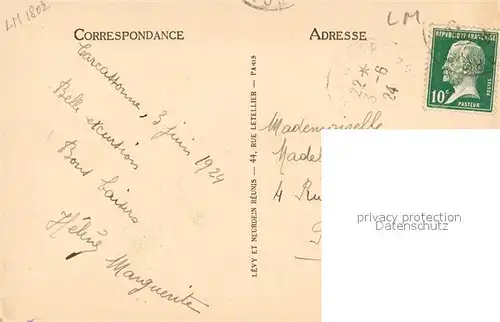 LM 1802
LM
CORRESPONDANCE
ADRESSE
Carcassonne, 3 juin 1924
Belle excursion
Bons baisers
Hélène
Marguerite
LÉVY ET NEURDEIN RÉUNIS — 44, RUE LETELLIER — PARIS
22 *
3 - 6
24
RÉPUBLIQUE FRANÇAISE
10c
POSTES
PASTEUR
Mademoiselle
Madel
4 Ru
privacy protection
Datenschutz